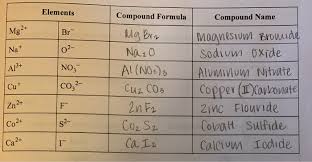 Elements Compound Formula Compound Name
Mg²⁺ Br⁻ MgBr₂ Magnesium Bromide
Na⁺ O²⁻ Na₂O Sodium Oxide
Al³⁺ NO₃⁻ Al(NO₃)₃ Aluminum Nitrate
Cu⁺ CO₃²⁻ Cu₂CO₃ Copper (I) Carbonate
Zn²⁺ F⁻ ZnF₂ Zinc Flouride
Co²⁺ S²⁻ Co₂S₂ Cobalt Sulfide
Ca²⁺ I⁻ CaI₂ Calcium Iodide